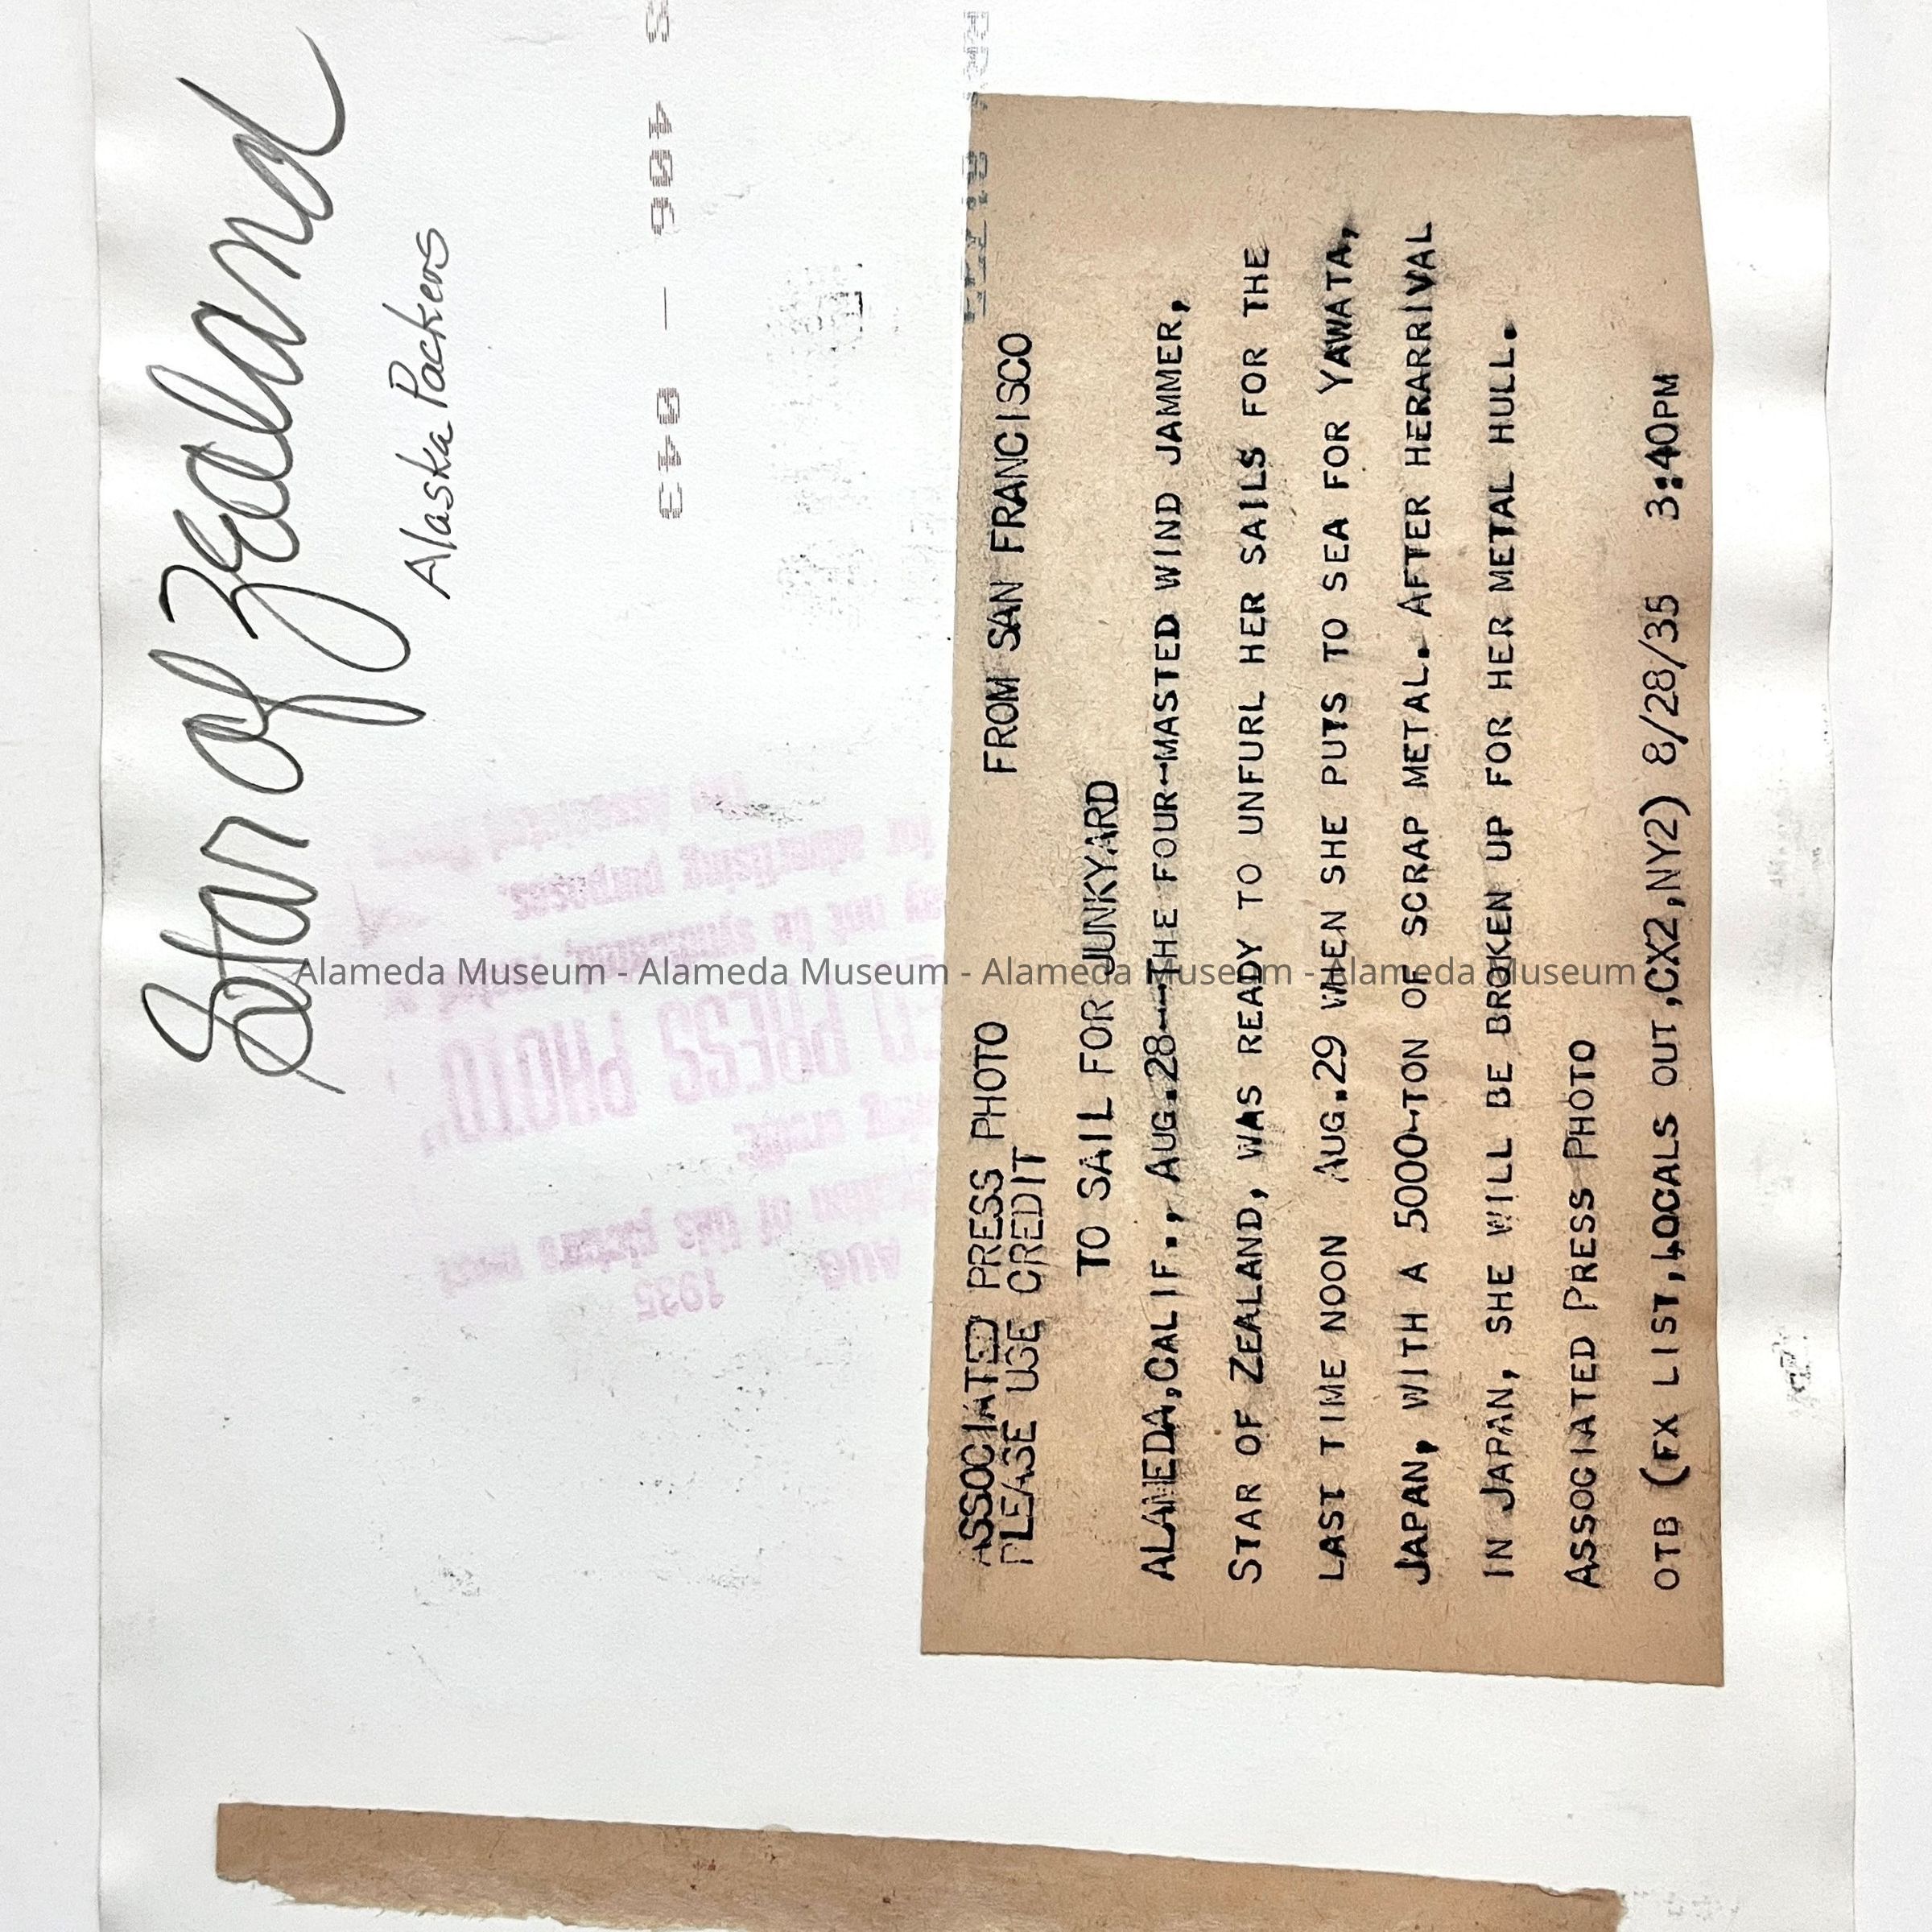 Star of Zealand
Alaska Packers
ASSOCIATED PRESS PHOTO FROM SAN FRANCISCO
PLEASE USE CREDIT
TO SAIL FOR JUNKYARD
ALAMEDA,CALIF., AUG.28--THE FOUR-MASTED WIND JAMMER,
STAR OF ZEALAND, WAS READY TO UNFURL HER SAILS FOR THE
LAST TIME NOON AUG.29 WHEN SHE PUTS TO SEA FOR YAWATA,
JAPAN, WITH A 5000-TON OF SCRAP METAL. AFTER HERARRIVAL
IN JAPAN, SHE WILL BE BROKEN UP FOR HER METAL HULL.
ASSOCIATED PRESS PHOTO
OTB (FX LIST,LOCALS OUT,CX2,NY2) 8/28/35 3:40PM
for advertising purposes.
not be
PRESS PHOTO"
of this picture must
AUG
1935
Alameda Museum - Alameda Museum - Alameda Museum - Alameda Museum